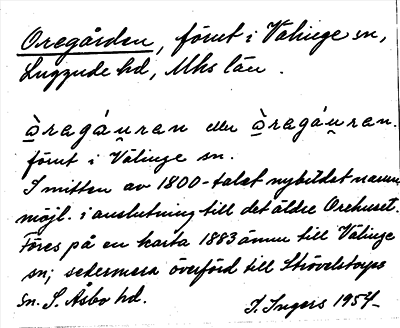 Oregården, förut i Välinge sn,
Luggude hd, Mhs län.
òragáu̯ran eller òragáu̯ran.
förut i Välinge sn.
I mitten av 1800-talet nybildat namn,
möjl. i anslutning till det äldre Orehuset.
Föres på en karta 1883 ännu till Välinge
sn; sedermera överförd till Strövelstorps
sn. S. Åsbo hd.
I. Ingers 1954